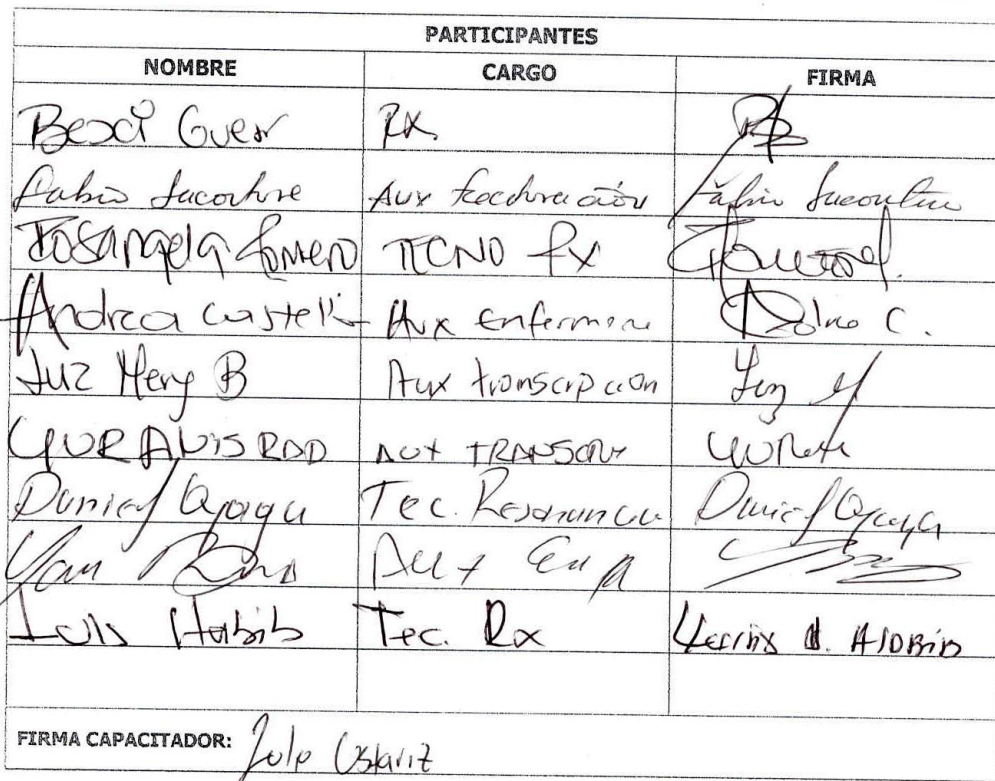 PARTICIPANTES
NOMBRE CARGO FIRMA
Bexci Guerr RX.
Fabio Lacouture Aux facturación Fabio Lacouture
Rosangela Romero TECNO Rx
Andrea Castell Aux enfermeri C.
Luz Mery B Aux transcripcion Luz M
YURANIS RDD AUX TRANSCRI
Daniel Oyaga Tec. Resonancia Daniel Oyaga
Aux
Luis Habib Tec. Rx
FIRMA CAPACITADOR: Julio Ustariz